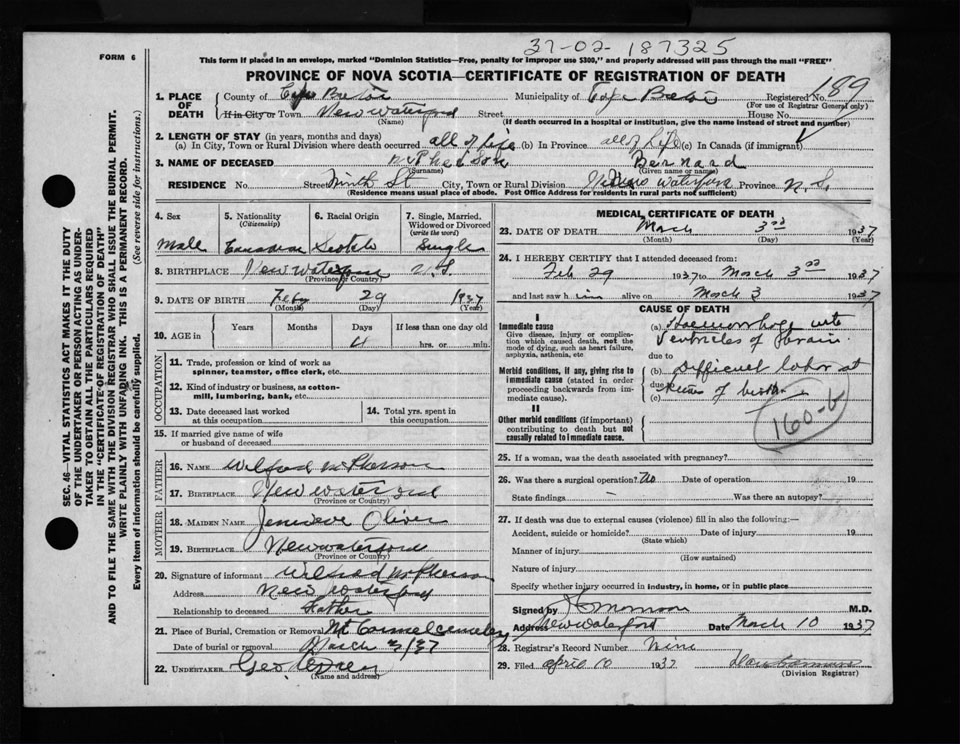 37-02-187325
FORM 6
This form if placed in an envelope, marked "Dominion Statistics—Free, penalty for improper use $300," and properly addressed will pass through the mail "FREE"
PROVINCE OF NOVA SCOTIA—CERTIFICATE OF REGISTRATION OF DEATH
1. PLACE OF DEATH
County of Cape Breton Municipality of Cape Breton Registered No. 189
(For use of Registrar General only)
If in City or Town New Waterford Street House No.
(Name) (If death occurred in a hospital or institution, give the name instead of street and number)
2. LENGTH OF STAY (in years, months and days)
(a) In City, Town or Rural Division where death occurred all of life (b) In Province all of Life (c) In Canada (if immigrant)
3. NAME OF DECEASED McPherson Bernard
(Surname) (Given name or names)
RESIDENCE No. Street Ninth St City, Town or Rural Division New Waterford Province N.S.
(Residence means usual place of abode. Post Office Address for residents in rural parts not sufficient)
4. Sex
Male
5. Nationality (Citizenship)
Canadian
6. Racial Origin
Scotch
7. Single, Married, Widowed or Divorced (write the word)
Single
8. BIRTHPLACE New Waterford N.S.
(Province or Country)
9. DATE OF BIRTH Feby 29 1937
(Month) (Day) (Year)
10. AGE in
Years Months Days If less than one day old
4 hrs. or min.
OCCUPATION
11. Trade, profession or kind of work as spinner, teamster, office clerk, etc.
12. Kind of industry or business, as cotton-mill, lumbering, bank, etc.
13. Date deceased last worked at this occupation
14. Total yrs. spent in this occupation
15. If married give name of wife or husband of deceased
FATHER
16. NAME Wilfred McPherson
17. BIRTHPLACE New Waterford
(Province or Country)
MOTHER
18. MAIDEN NAME Jenieve Oliver
19. BIRTHPLACE New Waterford
(Province or Country)
20. Signature of informant Wilfred McPherson
Address New Waterford
Relationship to deceased Father
21. Place of Burial, Cremation or Removal Mt Carmel cemetery
Date of burial or removal March 3/37
22. UNDERTAKER Geo
(Name and address)
MEDICAL CERTIFICATE OF DEATH
23. DATE OF DEATH March 3rd 1937
(Month) (Day) (Year)
24. I HEREBY CERTIFY that I attended deceased from:
Feb 29 1937 to March 3rd 1937
and last saw him alive on March 3 1937
CAUSE OF DEATH
I
Immediate cause
Give disease, injury or complication which caused death, not the mode of dying, such as heart failure, asphyxia, asthenia, etc.
(a) Haemorrhage into
Ventricles of brain
due to
Morbid conditions, if any, giving rise to immediate cause (stated in order proceeding backwards from immediate cause).
(b) Difficult labor at
due to time of birth
(c)
160-b
II
Other morbid conditions (if important) contributing to death but not causally related to immediate cause.
25. If a woman, was the death associated with pregnancy?
26. Was there a surgical operation? No Date of operation 19
State findings — Was there an autopsy?
27. If death was due to external causes (violence) fill in also the following:—
Accident, suicide or homicide? Date of injury 19
(State which)
Manner of injury
(How sustained)
Nature of injury
Specify whether injury occurred in industry, in home, or in public place
Signed by Morrison M.D.
Address New Waterford Date March 10 1937
28. Registrar's Record Number Nine
29. Filed April 10 1937
(Division Registrar)
SEC. 46—VITAL STATISTICS ACT MAKES IT THE DUTY
OF THE UNDERTAKER OR PERSON ACTING AS UNDER-
TAKER TO OBTAIN ALL THE PARTICULARS REQUIRED
IN THE "CERTIFICATE OF REGISTRATION OF DEATH"
AND TO FILE THE SAME WITH THE DIVISION REGISTRAR WHO SHALL ISSUE THE BURIAL PERMIT.
WRITE PLAINLY WITH UNFADING INK. THIS IS A PERMANENT RECORD.
Every item of information should be carefully supplied. (See reverse side for instructions.)